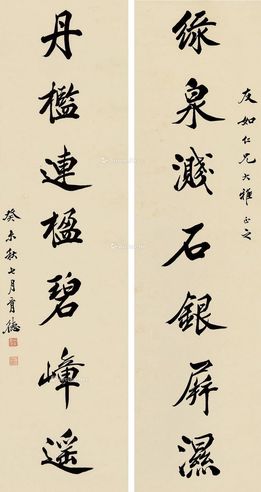 友如仁兄大雅正之
綠泉濺石銀屏濕
丹檻連楹碧嶂遥
癸未秋七月